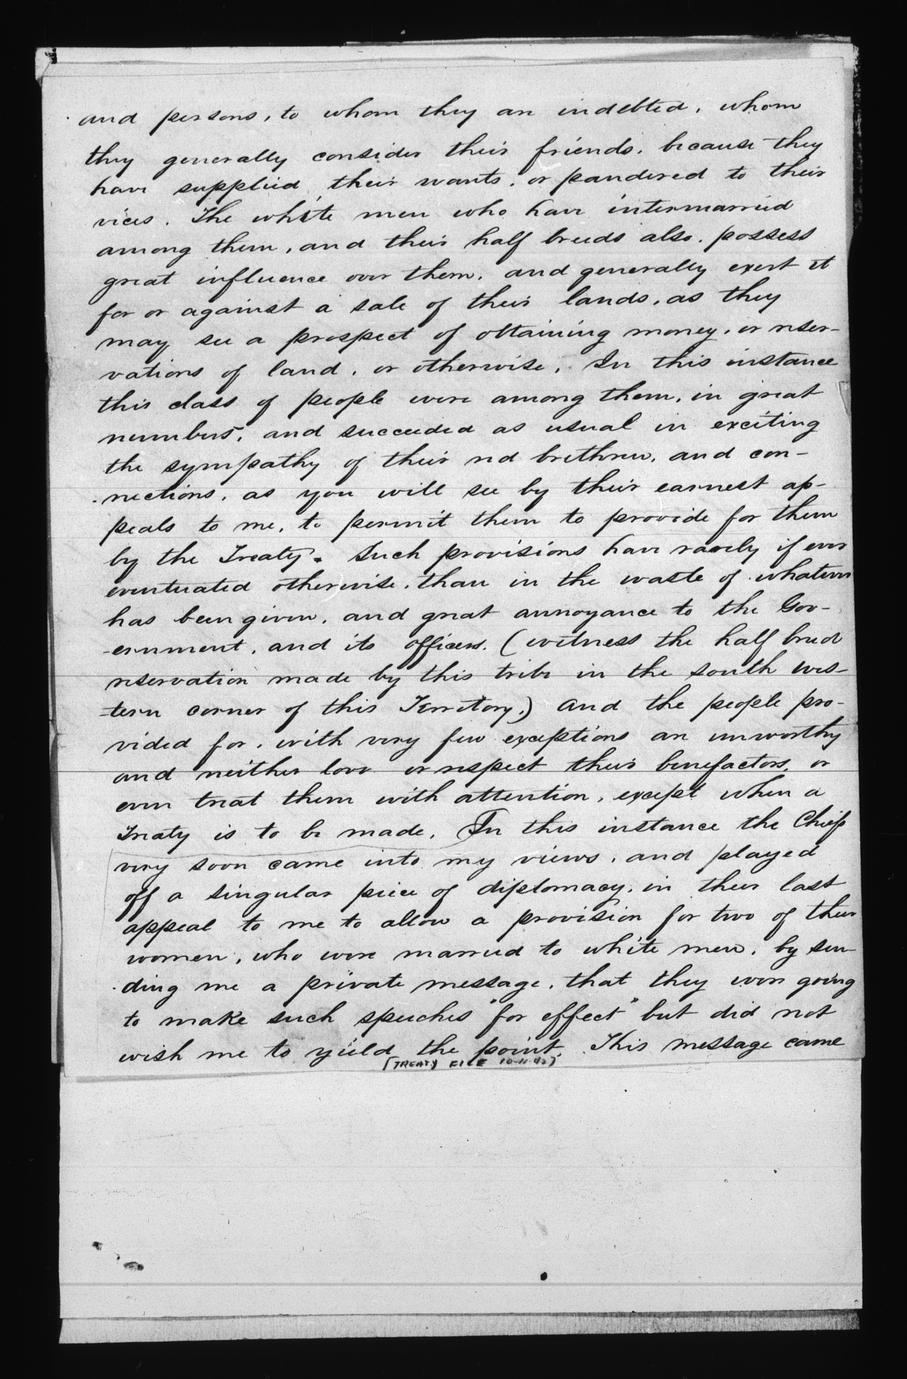 and persons, to whom they are indebted, whom
they generally consider their friends, because they
have supplied their wants, or pandered to their
vices. The white men who have intermarried
among them, and their half breeds also, possess
great influence over them, and generally exert it
for or against a sale of their lands, as they
may see a prospect of obtaining money, or reser-
vations of land, or otherwise. In this instance
this class of people were among them, in great
numbers, and succeeded as usual in exciting
the sympathy of their red brethren, and con-
nections, as you will see by their earnest ap-
peals to me, to permit them to provide for them
by the Treaty. Such provisions have rarely if ever
eventuated otherwise, than in the waste of whatever
has been given, and great annoyance to the Gov-
-ernment, and its officers. (witness the half breed
reservation made by this tribe in the south wes-
tern corner of this Territory.) And the people pro-
vided for, with very few exceptions are unworthy
and neither love or respect their benefactors, or
even treat them with attention, except when a
Treaty is to be made. In this instance the Chiefs
very soon came into my views, and played
off a singular piece of diplomacy, in their last
appeal to me to allow a provision for two of their
women, who were married to white men, by sen-
ding me a private message, that they were going
to make such speeches "for effect" but did not
wish me to yield the point. This message came
(TREATY FILE 10-11-42)